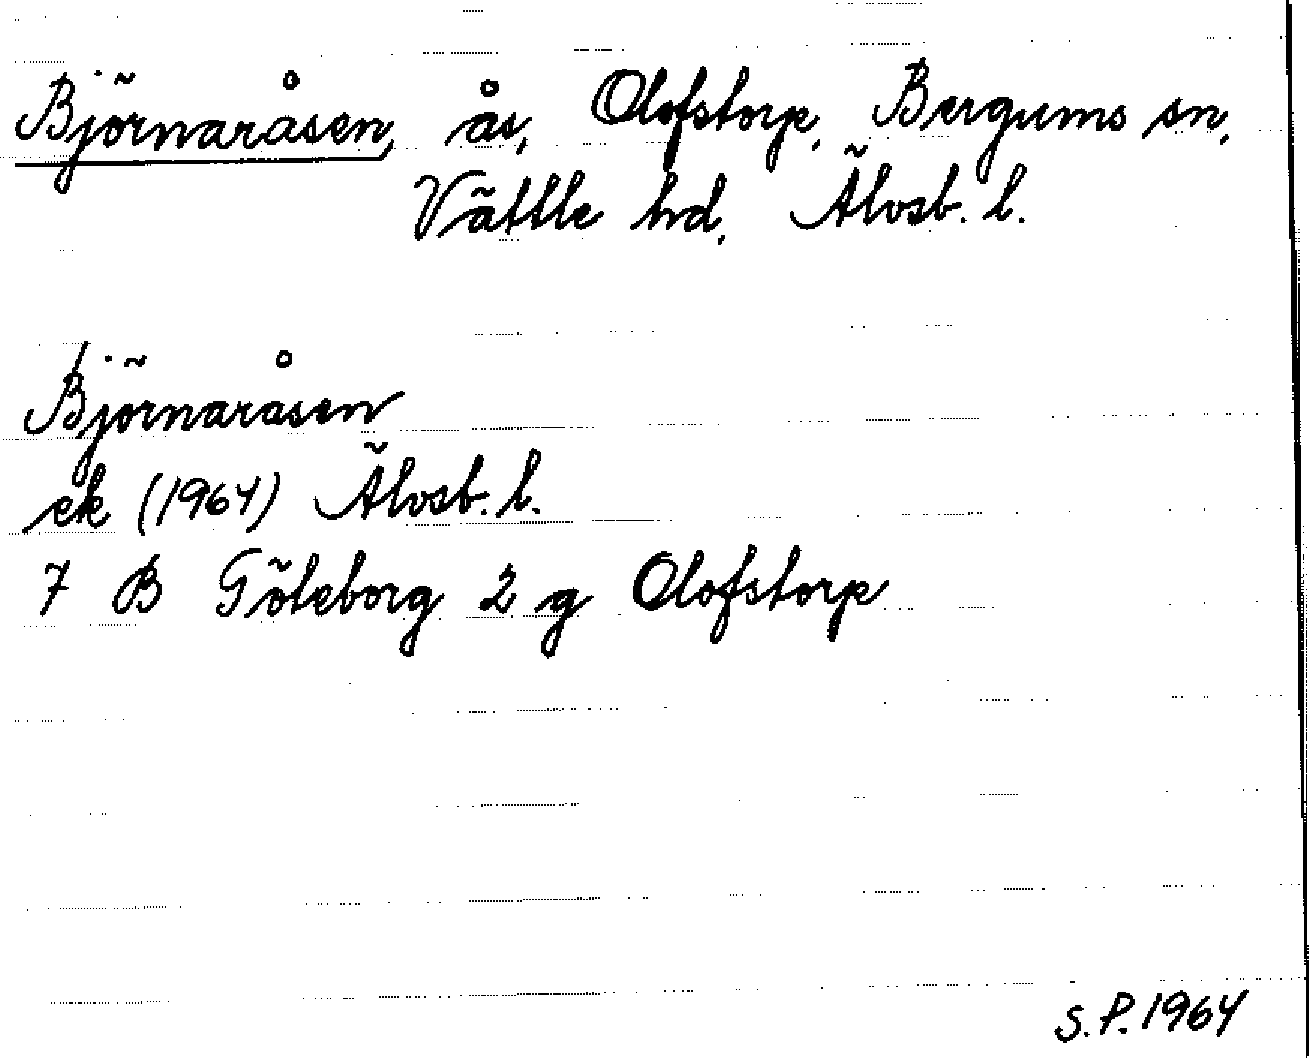 Björnaråsen, ås, Olofstorp, Bergums sn,
Vättle hd, Älvsb. l.
Björnaråsen
ek (1964) Älvsb. l.
7 B Göteborg 2 g Olofstorp
S.P. 1964